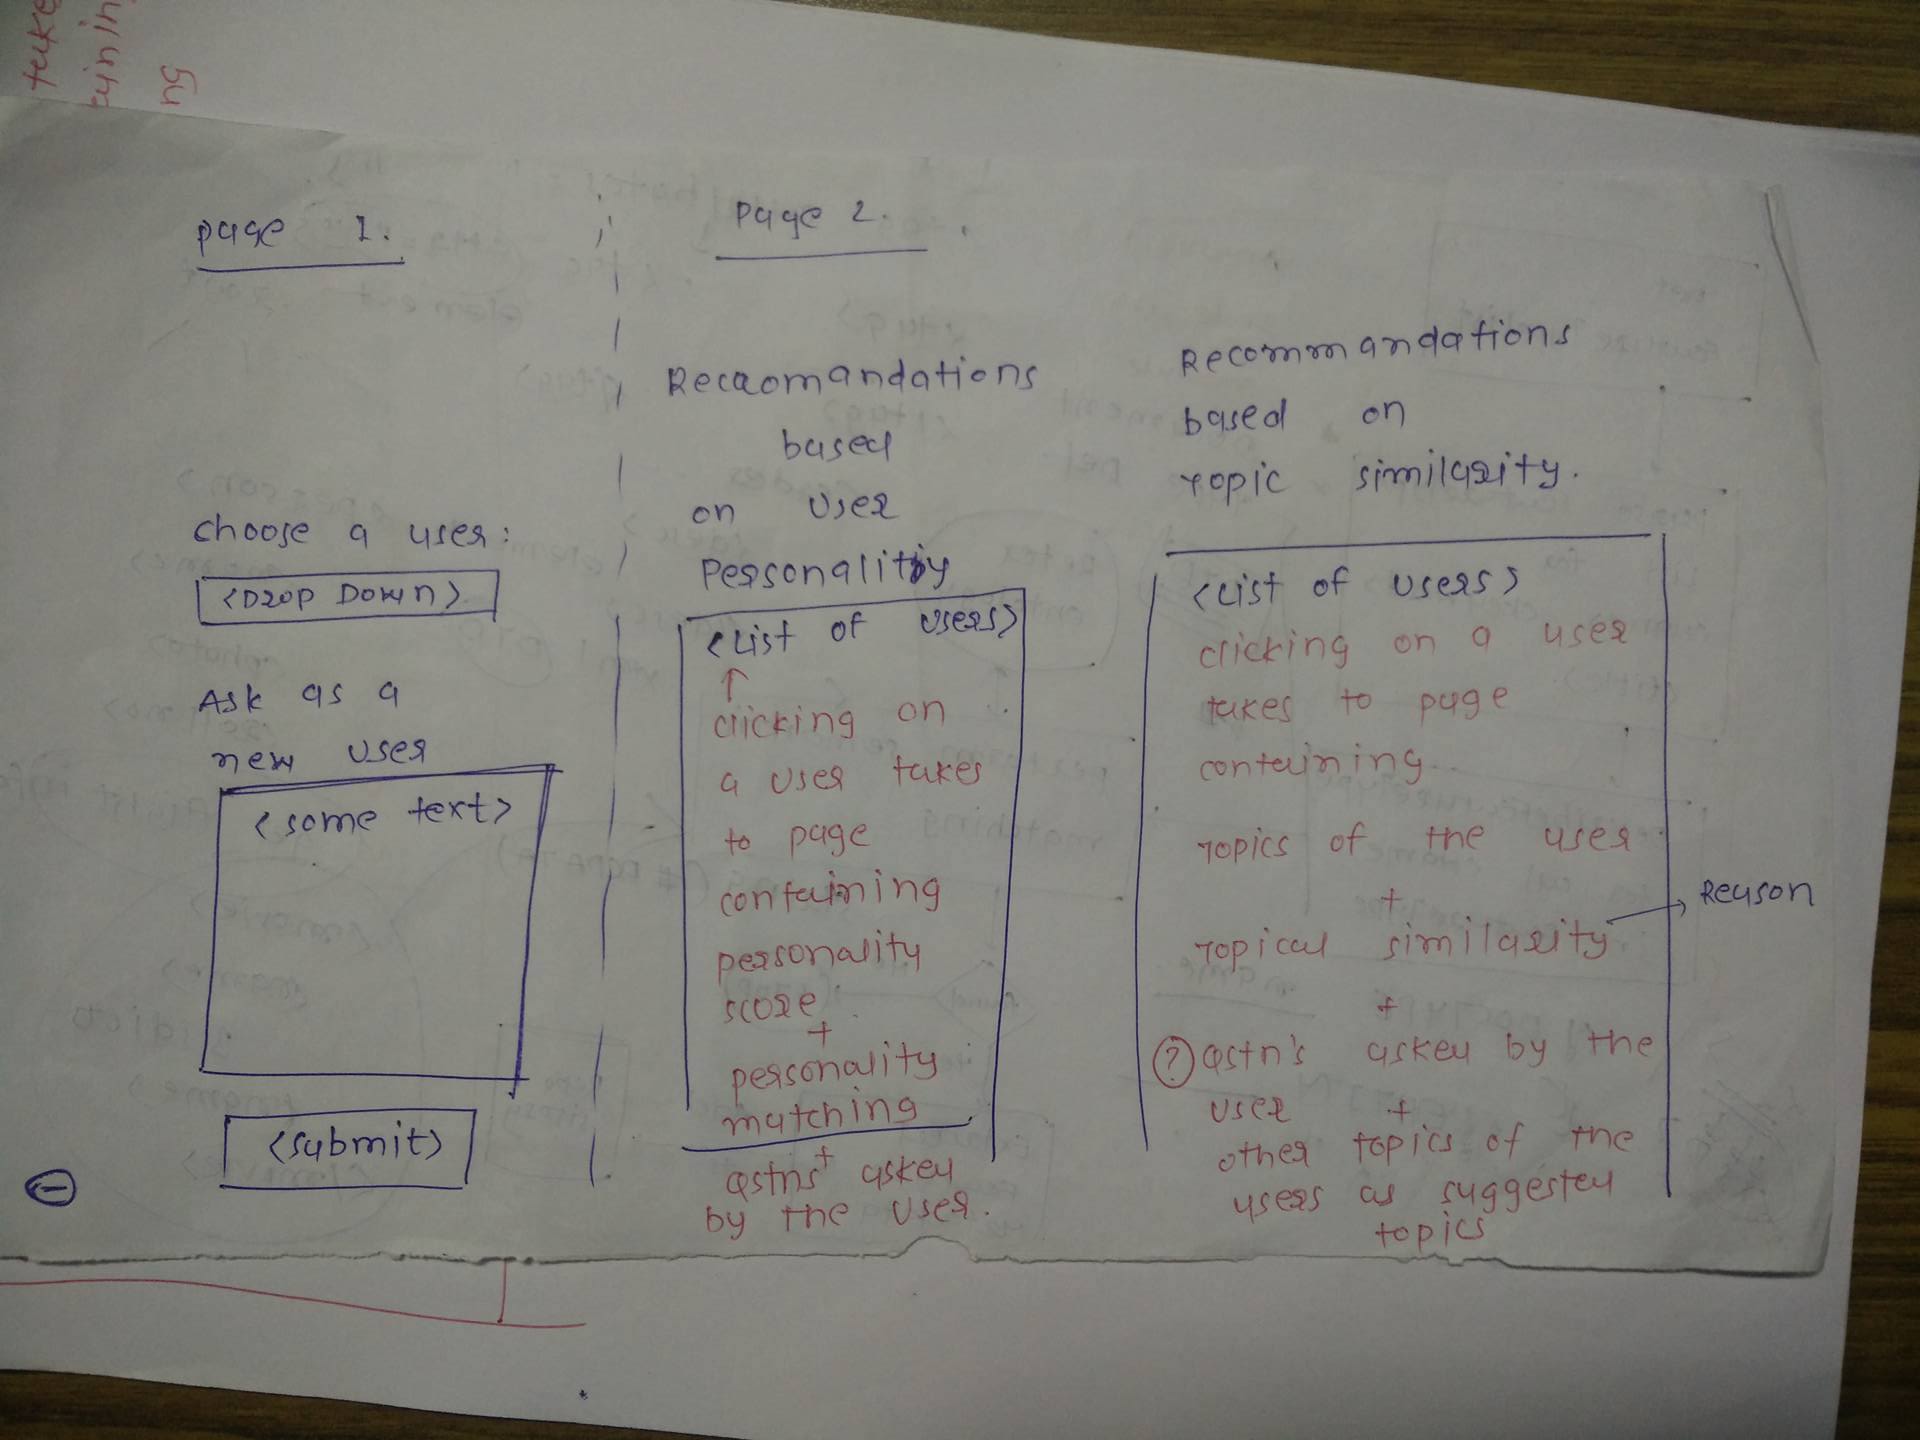 Page 1.
choose a user:
<Drop Down>
Ask as a
new user
<some text>
<submit>
Page 2.
Reccomandations
based
on user
Personality
<List of users>
clicking on
a user takes
to page
containing
personality
score
+
personality
matching
+
Qstns asked
by the user.
Recommandations
based on
Topic similarity.
<List of users>
clicking on a user
takes to page
containing
Topics of the user
+
Topical similarity
Reason
+
? Qstn's asked by the
user +
other topics of the
users as suggested
topics